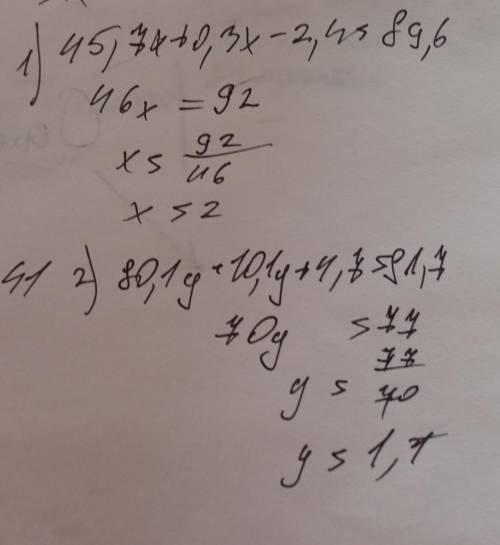 1) 45,7x+0,3x-2,4=89,6
46x = 92
x = 92/46
x = 2
41 2) 80,1y-10,1y+4,7=81,7
70y = 77
y = 77/70
y = 1,1